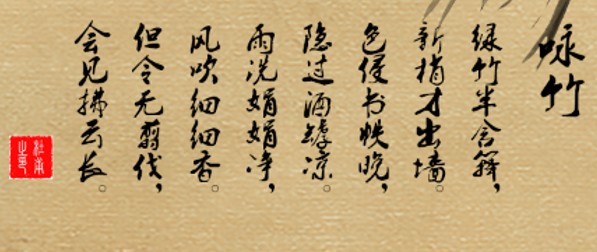 咏竹
绿竹半含箨，
新梢才出墙。
色侵书帙晚，
隐过酒罇凉。
雨洗娟娟净，
风吹细细香。
但令无翦伐，
会见拂云长。